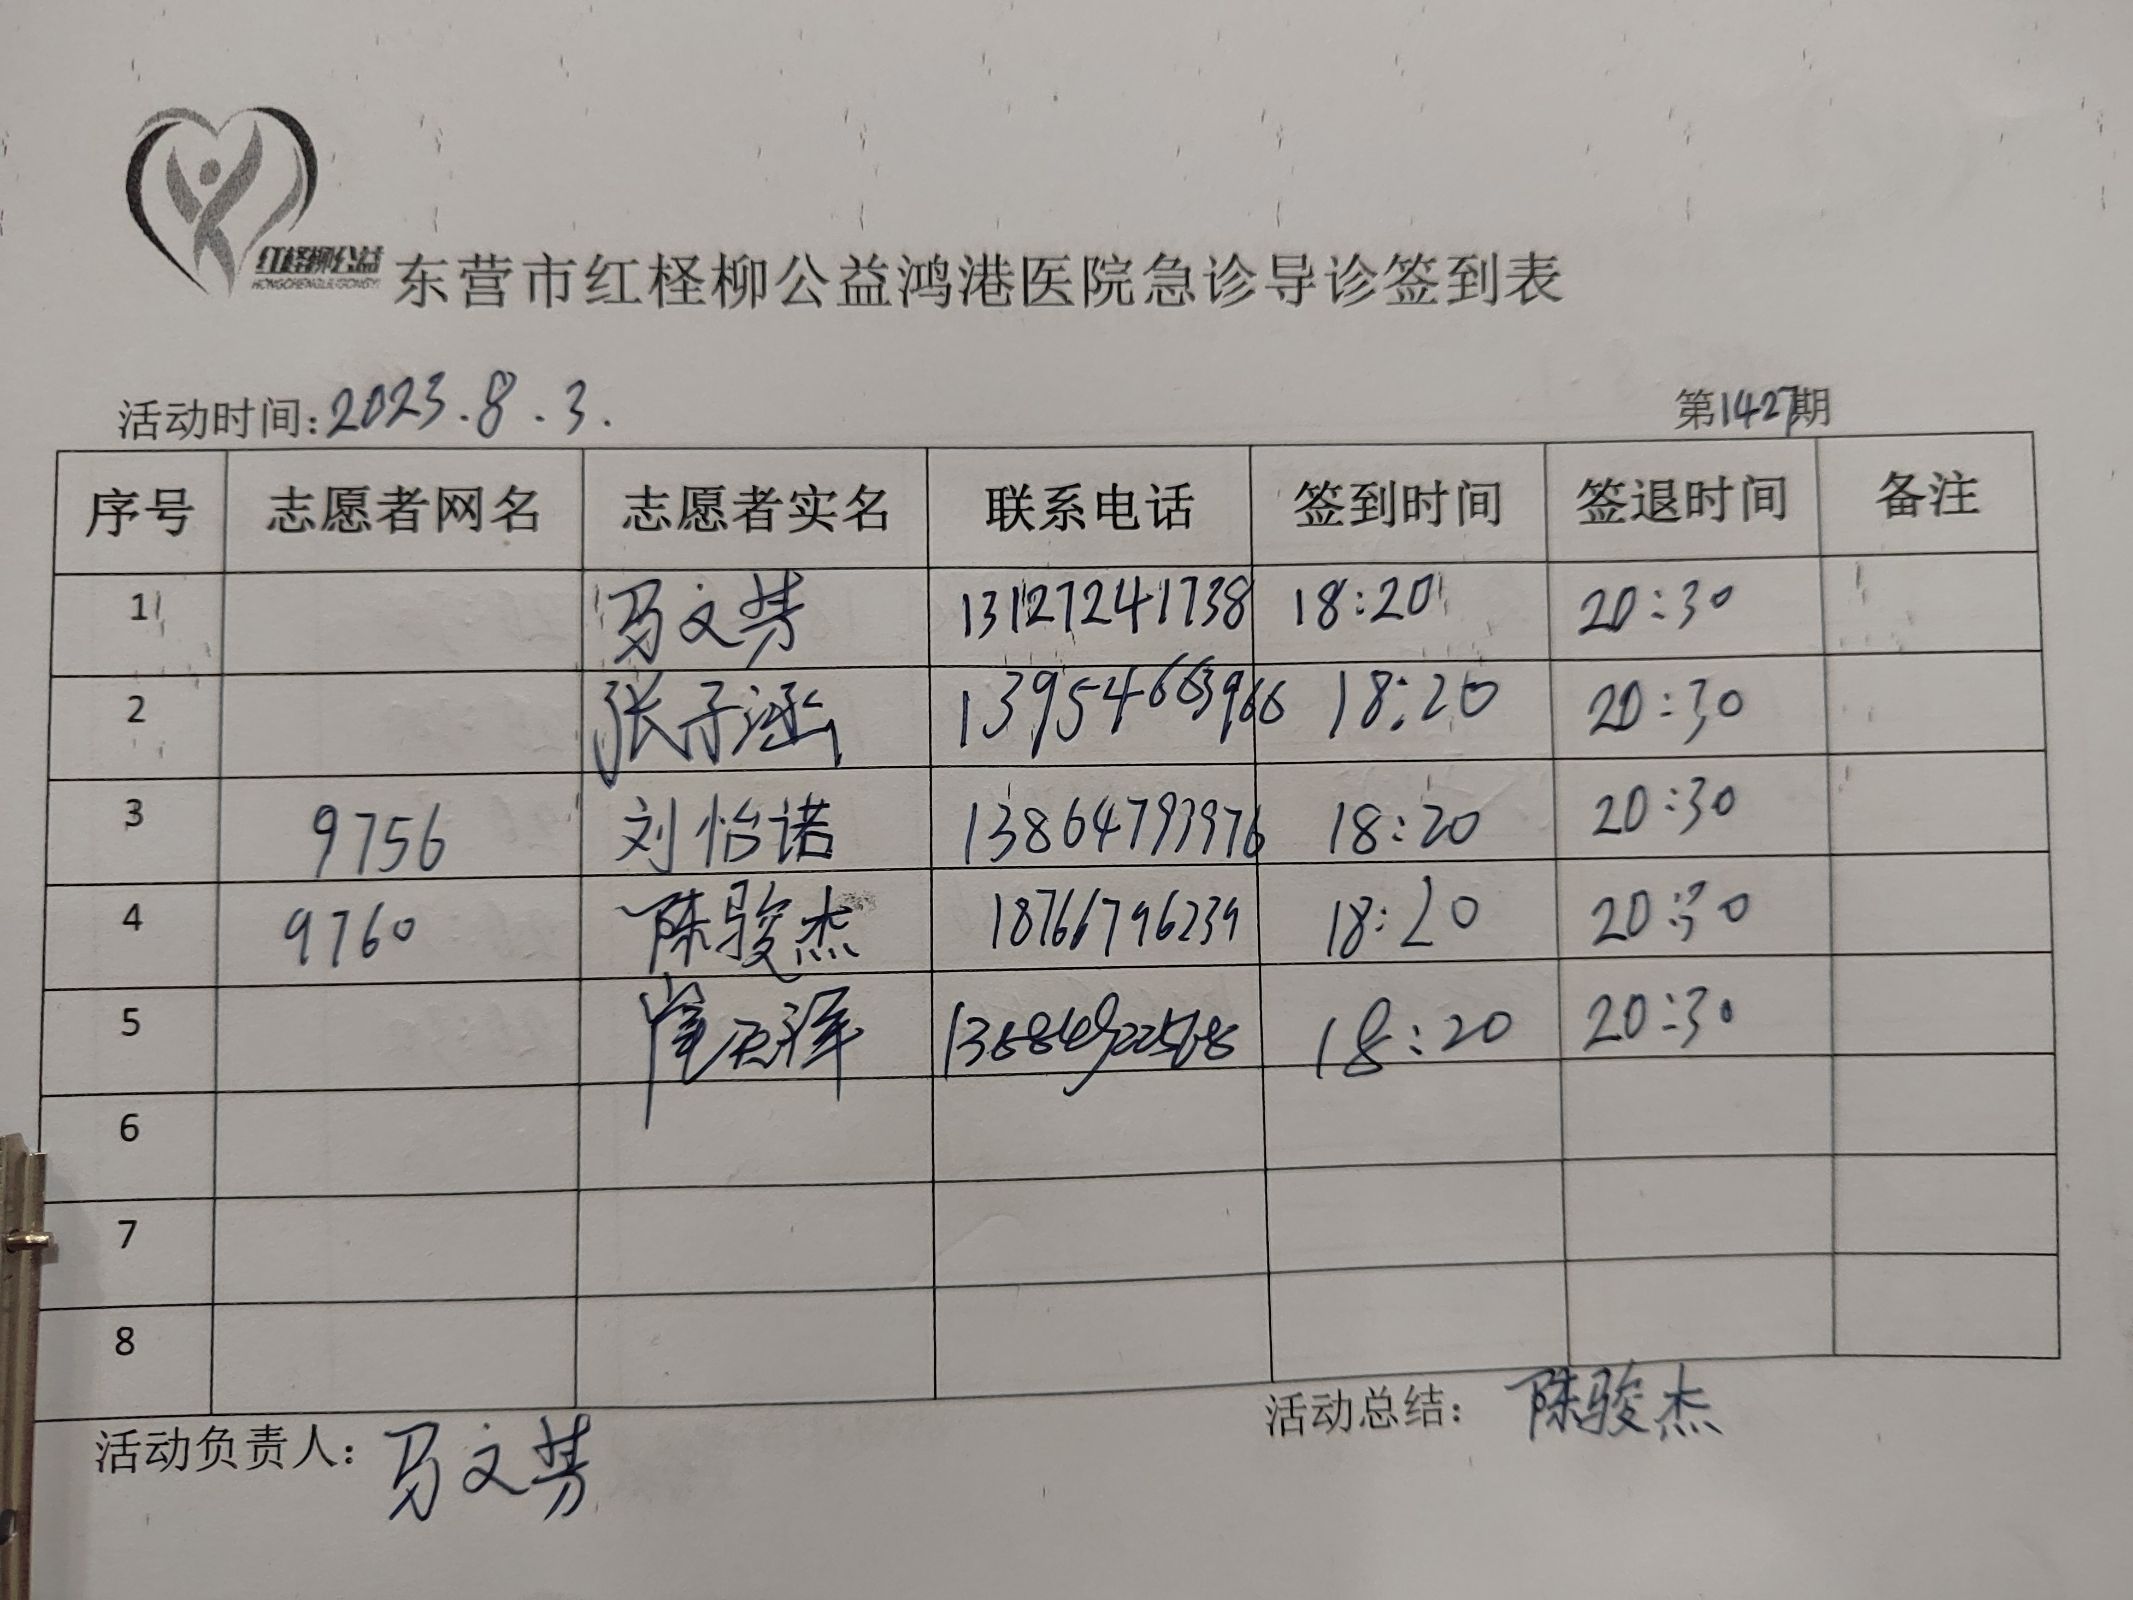 红柽柳公益
东营市红柽柳公益鸿港医院急诊导诊签到表
活动时间:2023.8.3. 第1427期
序号 志愿者网名 志愿者实名 联系电话 签到时间 签退时间 备注
1 马文芳 13127241738 18:20 20:30
2 张子涵 13954663966 18:20 20:30
3 9756 刘怡诺 18:20 20:30
4 9760 陈骏杰 18766796239 18:20 20:30
5 18:20 20:30
6
7
8
活动总结: 陈骏杰
活动负责人: 马文芳